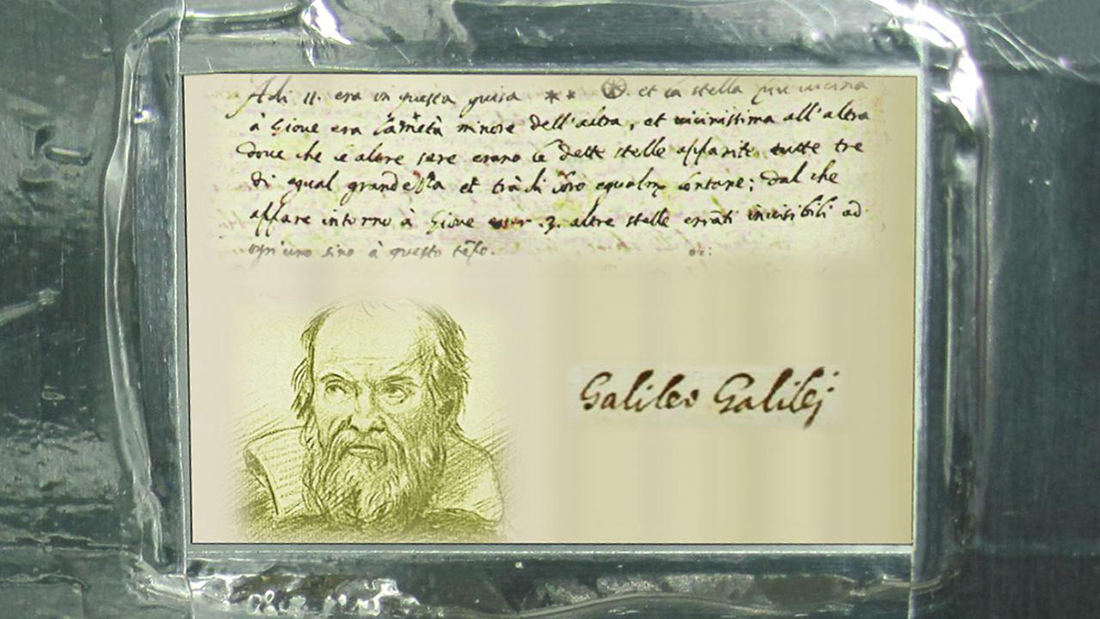 Adi 11. era in questa guisa ** et la stella più vicina
à Giove era la metà minore dell'altra, et vicinissima all'altra
dove che le altre sere erano le dette stelle apparite tutte tre
di equal grandezza et trà di loro equalm lontane; dal che
appare intorno à Giove esser .3. altre stelle errāti invisibili ad
ogn'uno sino à questo tēpo.
Galileo Galilej